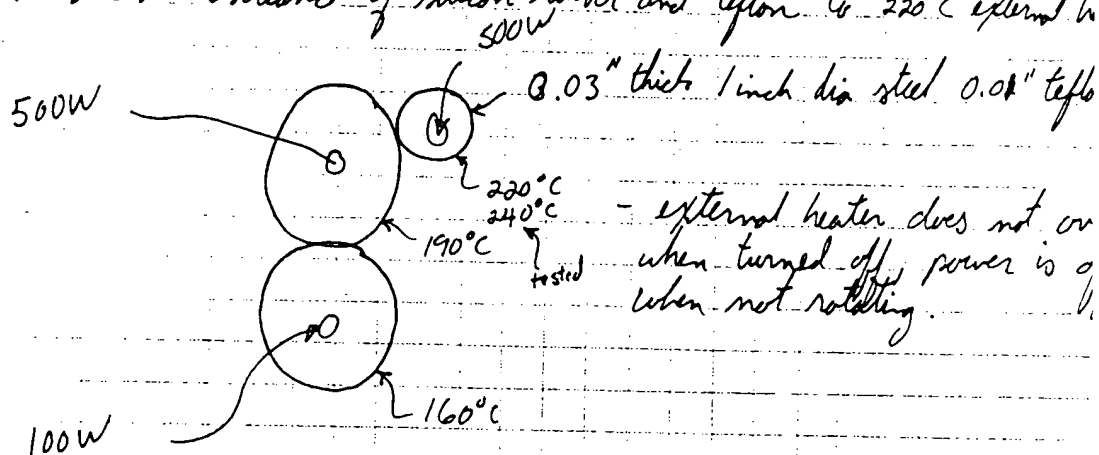 of silicon rubber and teflon to 220°C external
500W
500W
0.03" thick 1 inch dia steel 0.01"
220°C
240°C
190°C
tested
- external heater does not
when turned off, power is
when not rotating.
160°C
100W